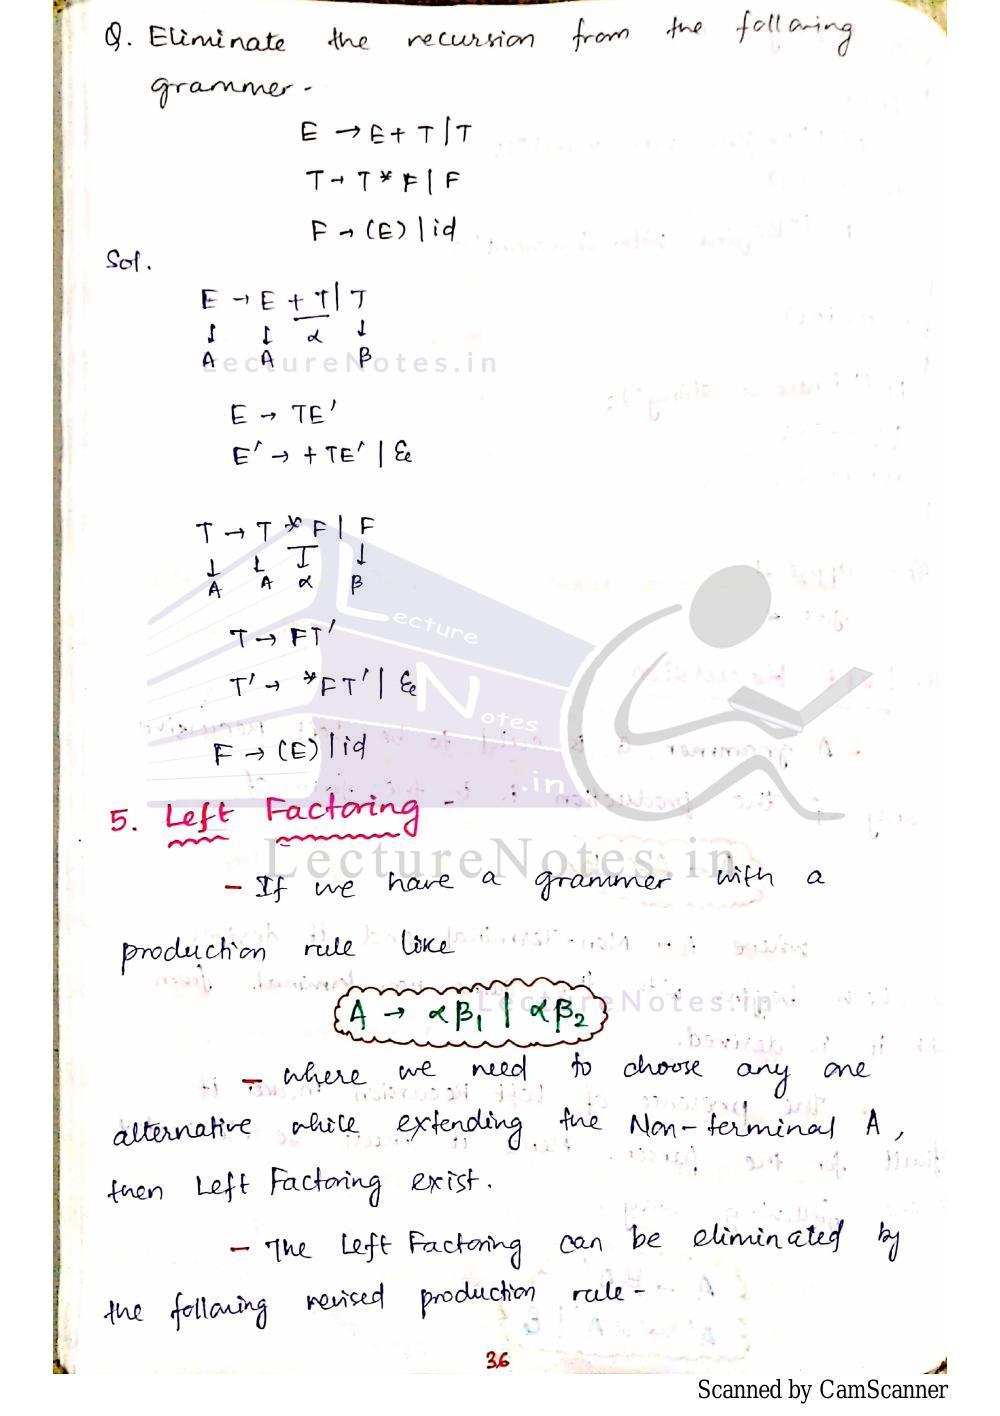 Q. Eliminate the recursion from the following
grammer -
E → E + T | T
T → T * F | F
F → (E) | id
Sol.
E → E + T | T
↓ ↓ α ↓
A A β
LectureNotes.in
E → TE'
E' → + TE' | ε
T → T * F | F
↓ ↓ ↓
A A α β
Lecture
T → FT'
T' → *FT' | ε
Notes
F → (E) | id
.in
5. Left Factoring -
LectureNotes.in
- If we have a grammer with a
production rule like
A → αβ₁ | αβ₂
LectureNotes.in
- where we need to choose any one
alternative while extending the Non-terminal A,
then Left Factoring exist.
- The Left Factoring can be eliminated by
the following revised production rule -
36
Scanned by CamScanner